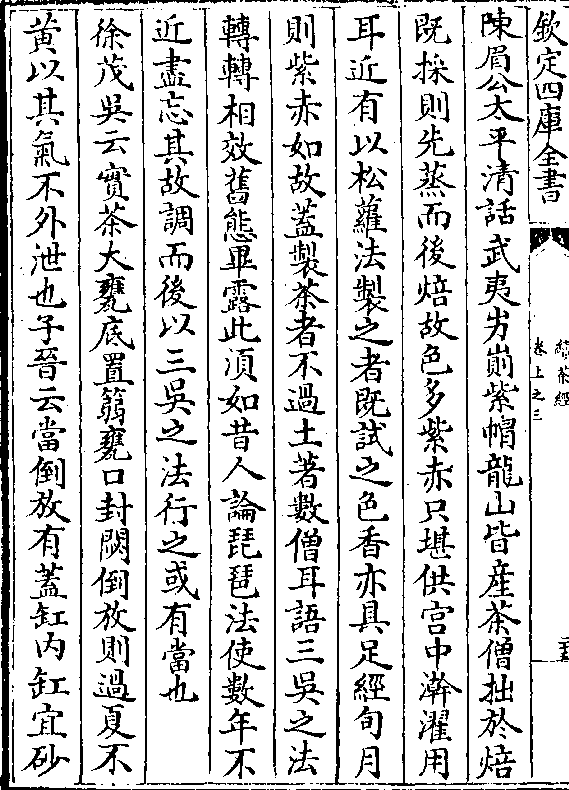 欽定四庫全書
續茶經
卷上之三
二十五
陳眉公太平清話武夷屴崱紫帽龍山皆産茶僧拙於焙
既採則先蒸而後焙故色多紫赤只堪供宫中澣濯用
耳近有以松蘿法製之者既試之色香亦具足經旬月
則紫赤如故葢製茶者不過土著數僧耳語三吳之法
轉轉相效舊態畢露此湏如昔人論琵琶法使數年不
近盡忘其故調而後以三吳之法行之或有當也
徐茂吳云實茶大甕底置箬甕口封閟倒放則過夏不
黄以其氣不外泄也子晉云當倒放有蓋缸内缸宜砂